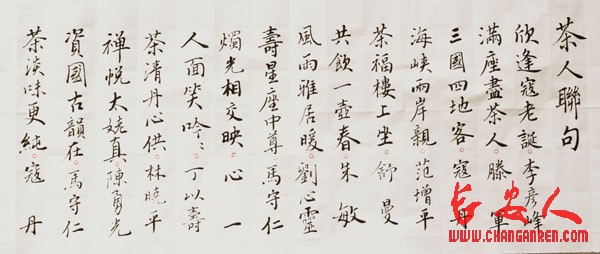 茶人聯句
欣逢寇老誕。李彥峰
滿座盡茶人。滕軍
三國四地客。寇丹
海峽兩岸親。范增平
茶福樓上坐。舒曼
共飲一壺春。朱敏
風雨雅居暖。劉心靈
壽星座中尊。馬守仁
燭光相交映。心一
人面笑吟〻。丁以壽
茶清丹心供。林曉平
禪悅太姥真。陳勇光
資國古韻在。馬守仁
茶淡味更純。寇丹
长安人
WWW.CHANGANREN.COM